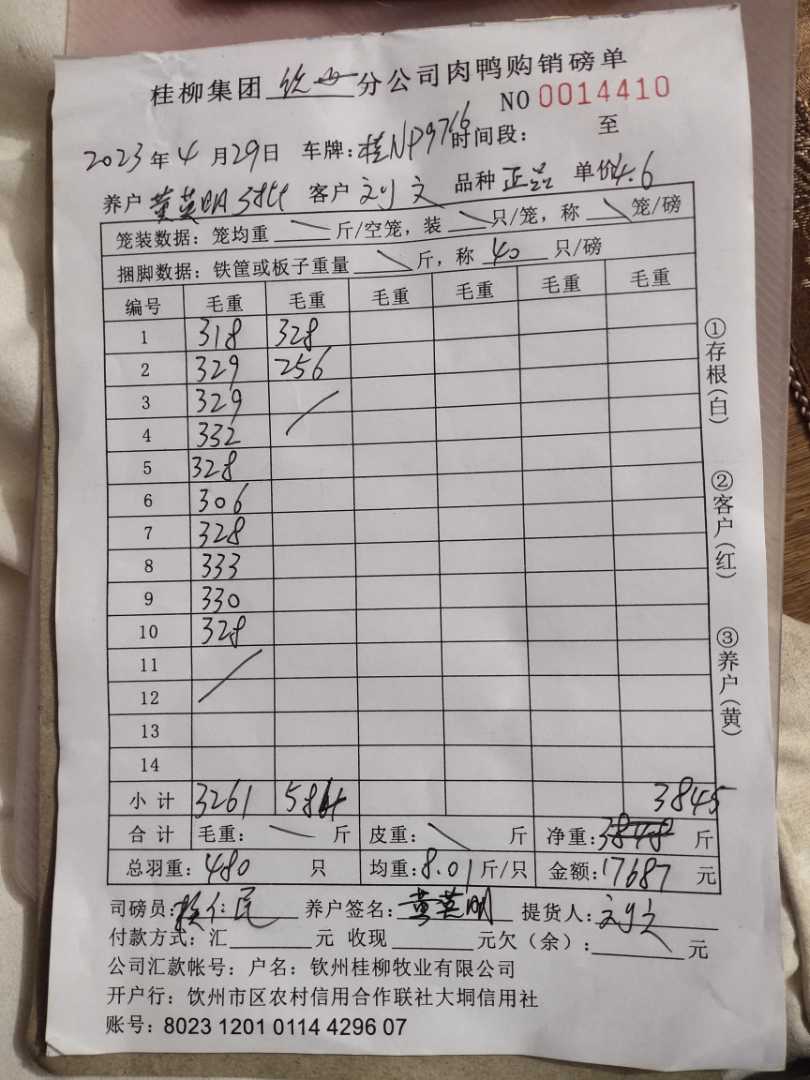 桂柳集团 钦州 分公司肉鸭购销磅单
NO 0014410
2023年4月29日 车牌:桂NP9766 时间段: 至
养户 黄英明 客户 刘文 品种 正品 单价4.6
笼装数据:笼均重 \ 斤/空笼,装 \ 只/笼,称 \ 笼/磅
捆脚数据:铁筐或板子重量 \ 斤,称 40 只/磅
编号 毛重 毛重 毛重 毛重 毛重 毛重
1 318 328
2 329 256
3 329 /
4 332
5 328
6 306
7 328
8 333
9 330
10 328
11 /
12
13
14
小计 3261 584 3845
合计 毛重: \ 斤 皮重: \ 斤 净重:3848 斤
总羽重:480 只 均重:8.01斤/只 金额:17687 元
司磅员: 仁民 养户签名:黄英明 提货人:刘文
付款方式:汇 元 收现 元欠(余): \ 元
公司汇款帐号:户名:钦州桂柳牧业有限公司
开户行:饮州市区农村信用合作联社大垌信用社
账号:8023 1201 0114 4296 07
①存根(白)
②客户(红)
③养户(黄)